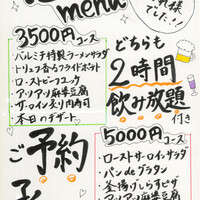 menu
れ様
でした!!
3500円コース
・バルミチ特製ラーメンサラダ
・トリュフ香るフライドポテト
・ローストビーフユッケ
・アツアツ麻婆豆腐
・サーロイン炙り肉寿司
・本日のデザート
どちらも
2時間
飲み放題
付き
ご予約
5000円コース
・ローストサーロインサラダ
・パンdeグラタン
・釜揚げしらすピザ
・アツアツ麻婆豆腐